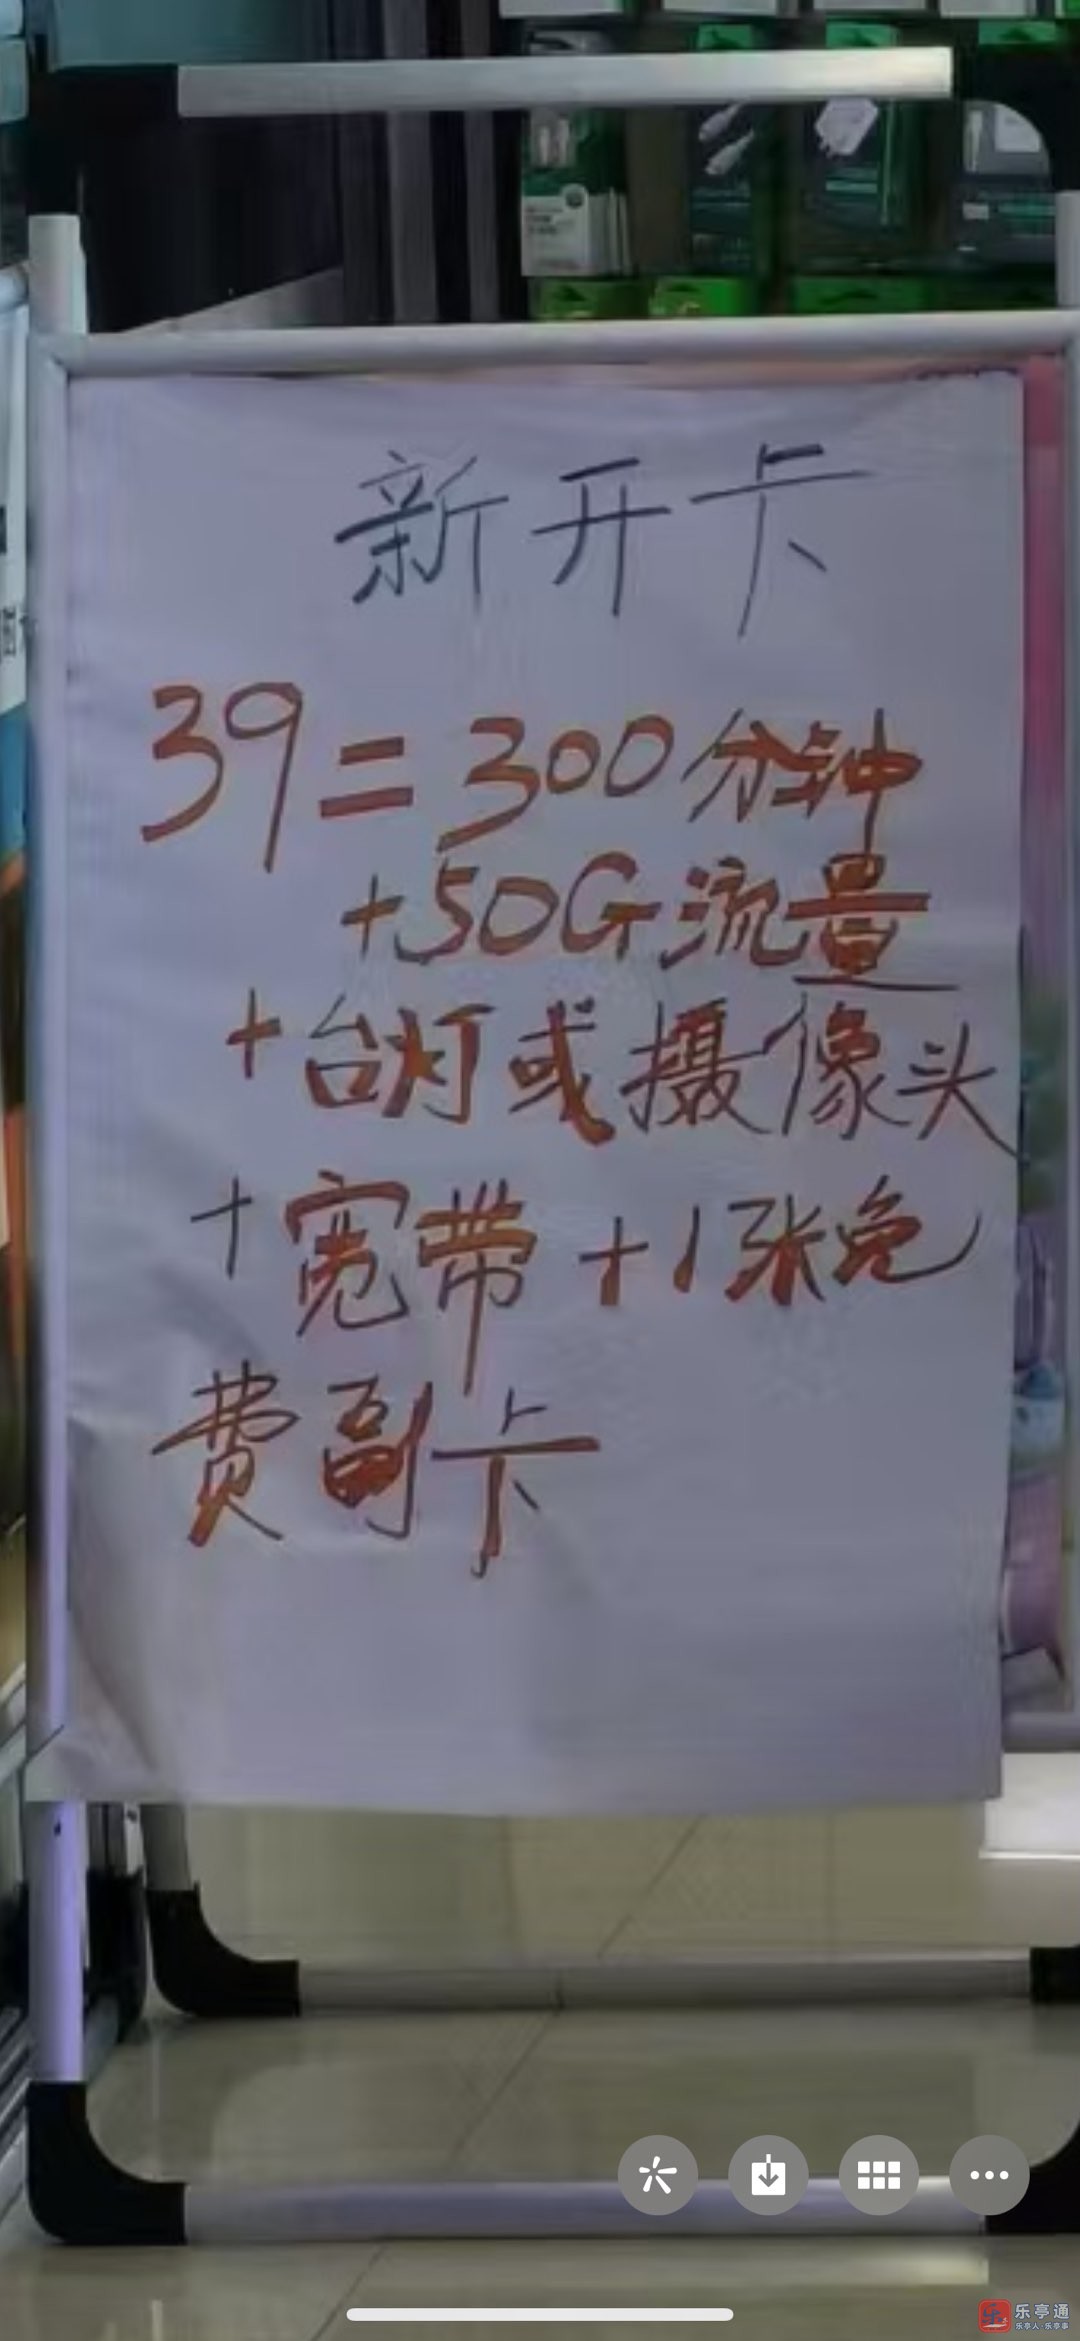 新开卡
39=300分钟
+50G流量
+台灯或摄像头
+宽带+1张免
费副卡
乐亭通
乐亭人·乐亭事